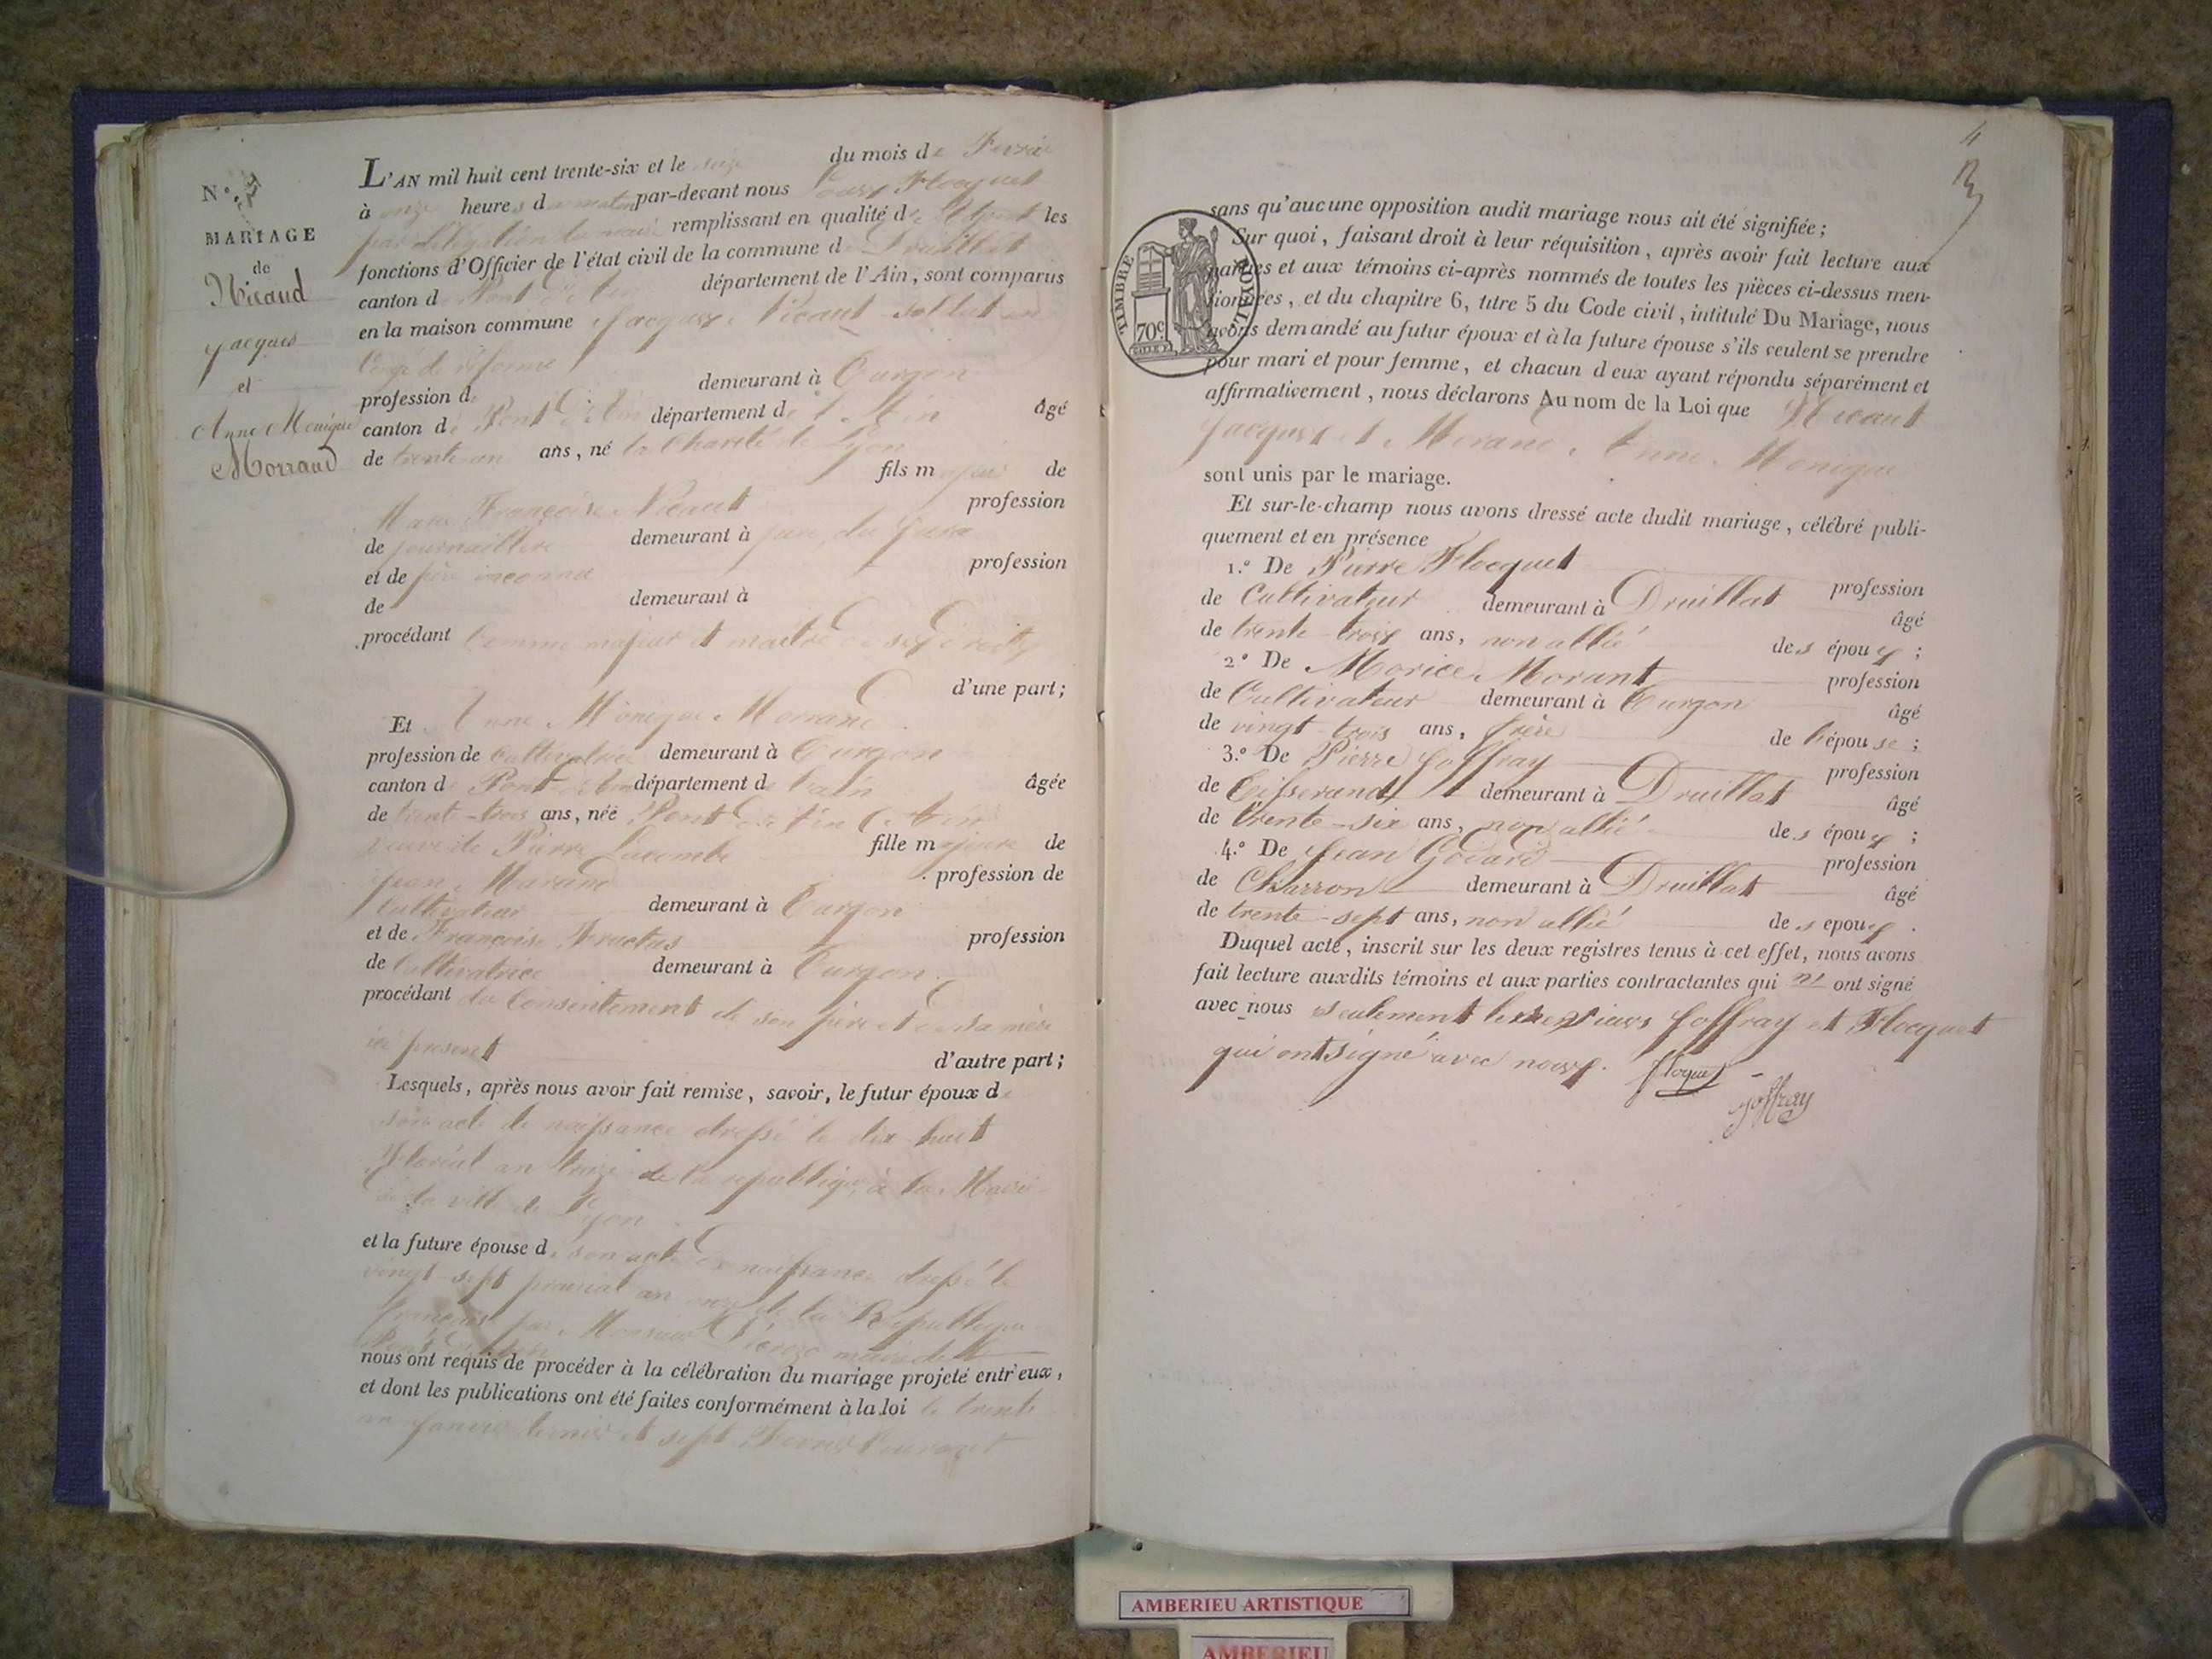 N.º
MARIAGE
de
Nicaud
Jacques
et
Anne Monique
Morraud
L'AN mil huit cent trente-six et le seize du mois de Fevrier
à onze heures du matin par-devant nous Flocquet
par délégation du maire remplissant en qualité d'Adjoint les
fonctions d'Officier de l'état civil de la commune d Druillat
canton de Pont d'Ain département de l'Ain, sont comparus
en la maison commune Jacques Nicaut soldat en
Congé de réforme
profession d demeurant à Turgon
canton de Pont d'Ain département de l'Ain âgé
de trente-un ans, né la Charité de Lyon
fils majeur de
Marie Françoise Nicaut profession
de journaillere demeurant à Jura
et de père inconnu profession
de demeurant à
procédant Comme majeur et maître de ses droits
d'une part;
Et Anne Monique Morrand
profession de cultivatrice demeurant à Turgon
canton de Pont d'Ain département de l'ain âgée
de trente-trois ans, née Pont d'Ain (Ain)
veuve de Pierre Lacombe fille majeure de
Jean Marand profession de
Cultivateur demeurant à Turgon
et de Françoise Fructus profession
de Cultivatrice demeurant à Turgon
procédant du Consentement de son père et de sa mère
ici present d'autre part;
Lesquels, après nous avoir fait remise, savoir, le futur époux de
son acte de naissance dressé le dix-huit
Floréal an treize de la republique à la Mairie
de la ville de Lyon
et la future épouse de son acte de naissance dressé le
vingt-sept prairial an onze de la République
française par Monsieur maire de
Pont d'Ain
nous ont requis de procéder à la célébration du mariage projeté entr'eux,
et dont les publications ont été faites conformément à la loi le trente
un janvier dernier et sept Fevrier Courant
4
sans qu'aucune opposition audit mariage nous ait été signifiée;
Sur quoi, faisant droit à leur réquisition, après avoir fait lecture aux
parties et aux témoins ci-après nommés de toutes les pièces ci-dessus men-
tionnées, et du chapitre 6, titre 5 du Code civil, intitulé Du Mariage, nous
avons demandé au futur époux et à la future épouse s'ils veulent se prendre
pour mari et pour femme, et chacun d'eux ayant répondu séparément et
affirmativement, nous déclarons Au nom de la Loi que Nicaut
Jacques et Morand Anne Monique
sont unis par le mariage.
TIMBRE ROYAL
70c.
Et sur-le-champ nous avons dressé acte dudit mariage, célébré publi-
quement et en présence
1.º De Pierre Flocquet profession
de Cultivateur demeurant à Druillat âgé
de trente-trois ans, non allié des époux;
2º De Morice Morant profession
de Cultivateur demeurant à Turgon âgé
de vingt-trois ans, frère de l'épouse;
3.º De Pierre Joffray profession
de Tisserand demeurant à Druillat âgé
de trente-six ans, non allié des époux;
4.º De Jean Godard profession
de Charron demeurant à Druillat âgé
de trente-sept ans, non allié des epoux.
Duquel acte, inscrit sur les deux registres tenus à cet effet, nous avons
fait lecture auxdits témoins et aux parties contractantes qui n' ont signé
avec nous seulement les messieurs Joffray et Flocquet
qui ont signé avec nous. floquet
joffray
AMBERIEU ARTISTIQUE
AMBERIEU